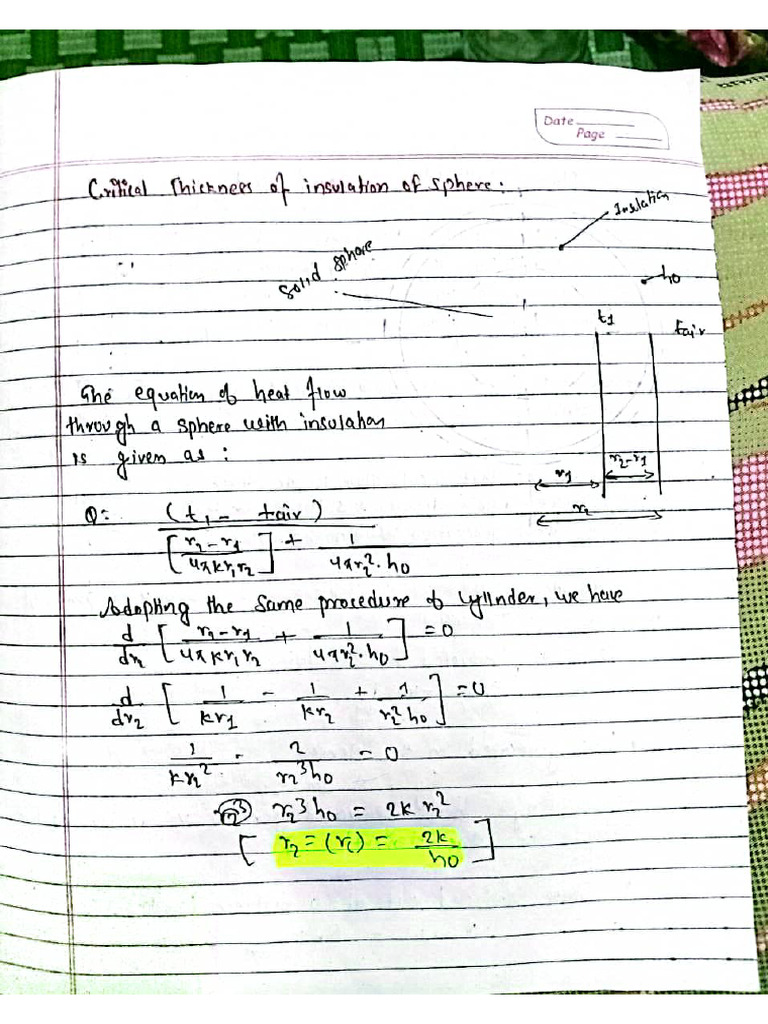 Date
Page
Critical Thickness of insulation of sphere:
Insulation
solid sphere
ho
t1
tair
The equation of heat flow
through a sphere with insulation
is given as:
r1
r2-r1
r2
Q = (t1 - tair) / ([r2-r1 / 4πkr1r2] + 1 / 4πr2². ho)
Adopting the same procedure of cylinder, we have
d/dr2 [r2-r1 / 4πkr1r2 + 1 / 4πr2². ho] = 0
d/dr2 [1/kr1 - 1/kr2 + 1/r2²ho] = 0
1/kr2² - 2/r2³ho = 0
r2³ho = 2kr2²
[r2 = (rc) = 2k/ho]